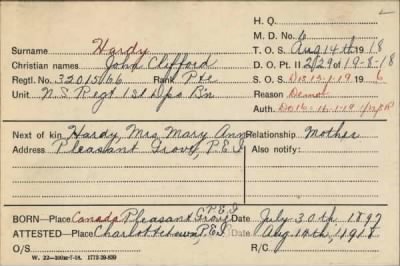 H. Q.
M. D. No. 6
Surname Hardy T. O. S. Aug 14th 1918
Christian names John Clifford D. O. Pt. II 2/29 of 19-8-18
Regtl. No. 3201566 Rank Pte S. O. S. 19
Unit N.S. Regt 1st Dpo Bn Reason Demob
Auth.
Next of kin Hardy Mrs Mary Ann Relationship Mother
Address Pleasant Grove, P.E.I Also notify:
BORN—Place Canada Pleasant Grove P.E.I Date July 30th 1897
ATTESTED—Place Charlottetown, P.E.I Date Aug 14th, 1918
O/S R/C